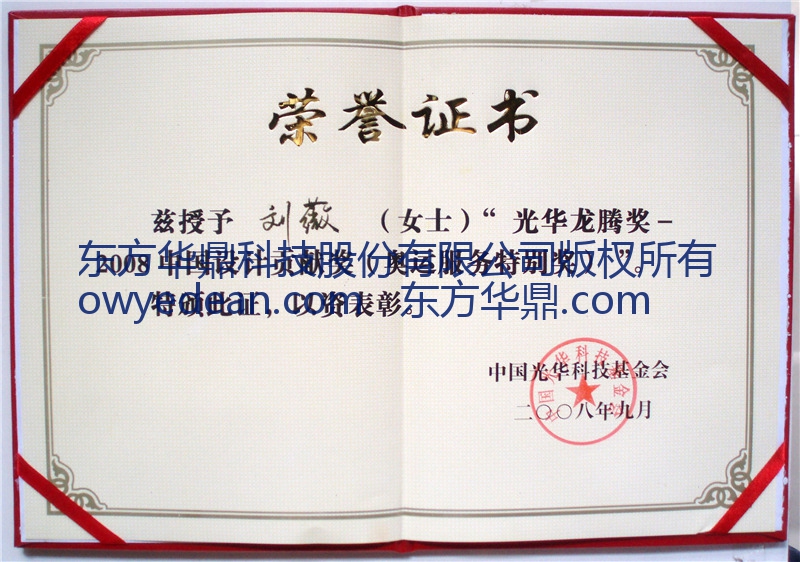 荣誉证书
兹授予 刘薇 （女士）“光华龙腾奖－
东方华鼎科技股份有限公司版权所有
2008 中国设计贡献奖（奥运服务特别奖）”。
owyedean.com 东方华鼎.com
特颁此证，以资表彰。
中国光华科技基金会
中国光华科技基金会
二〇〇八年九月